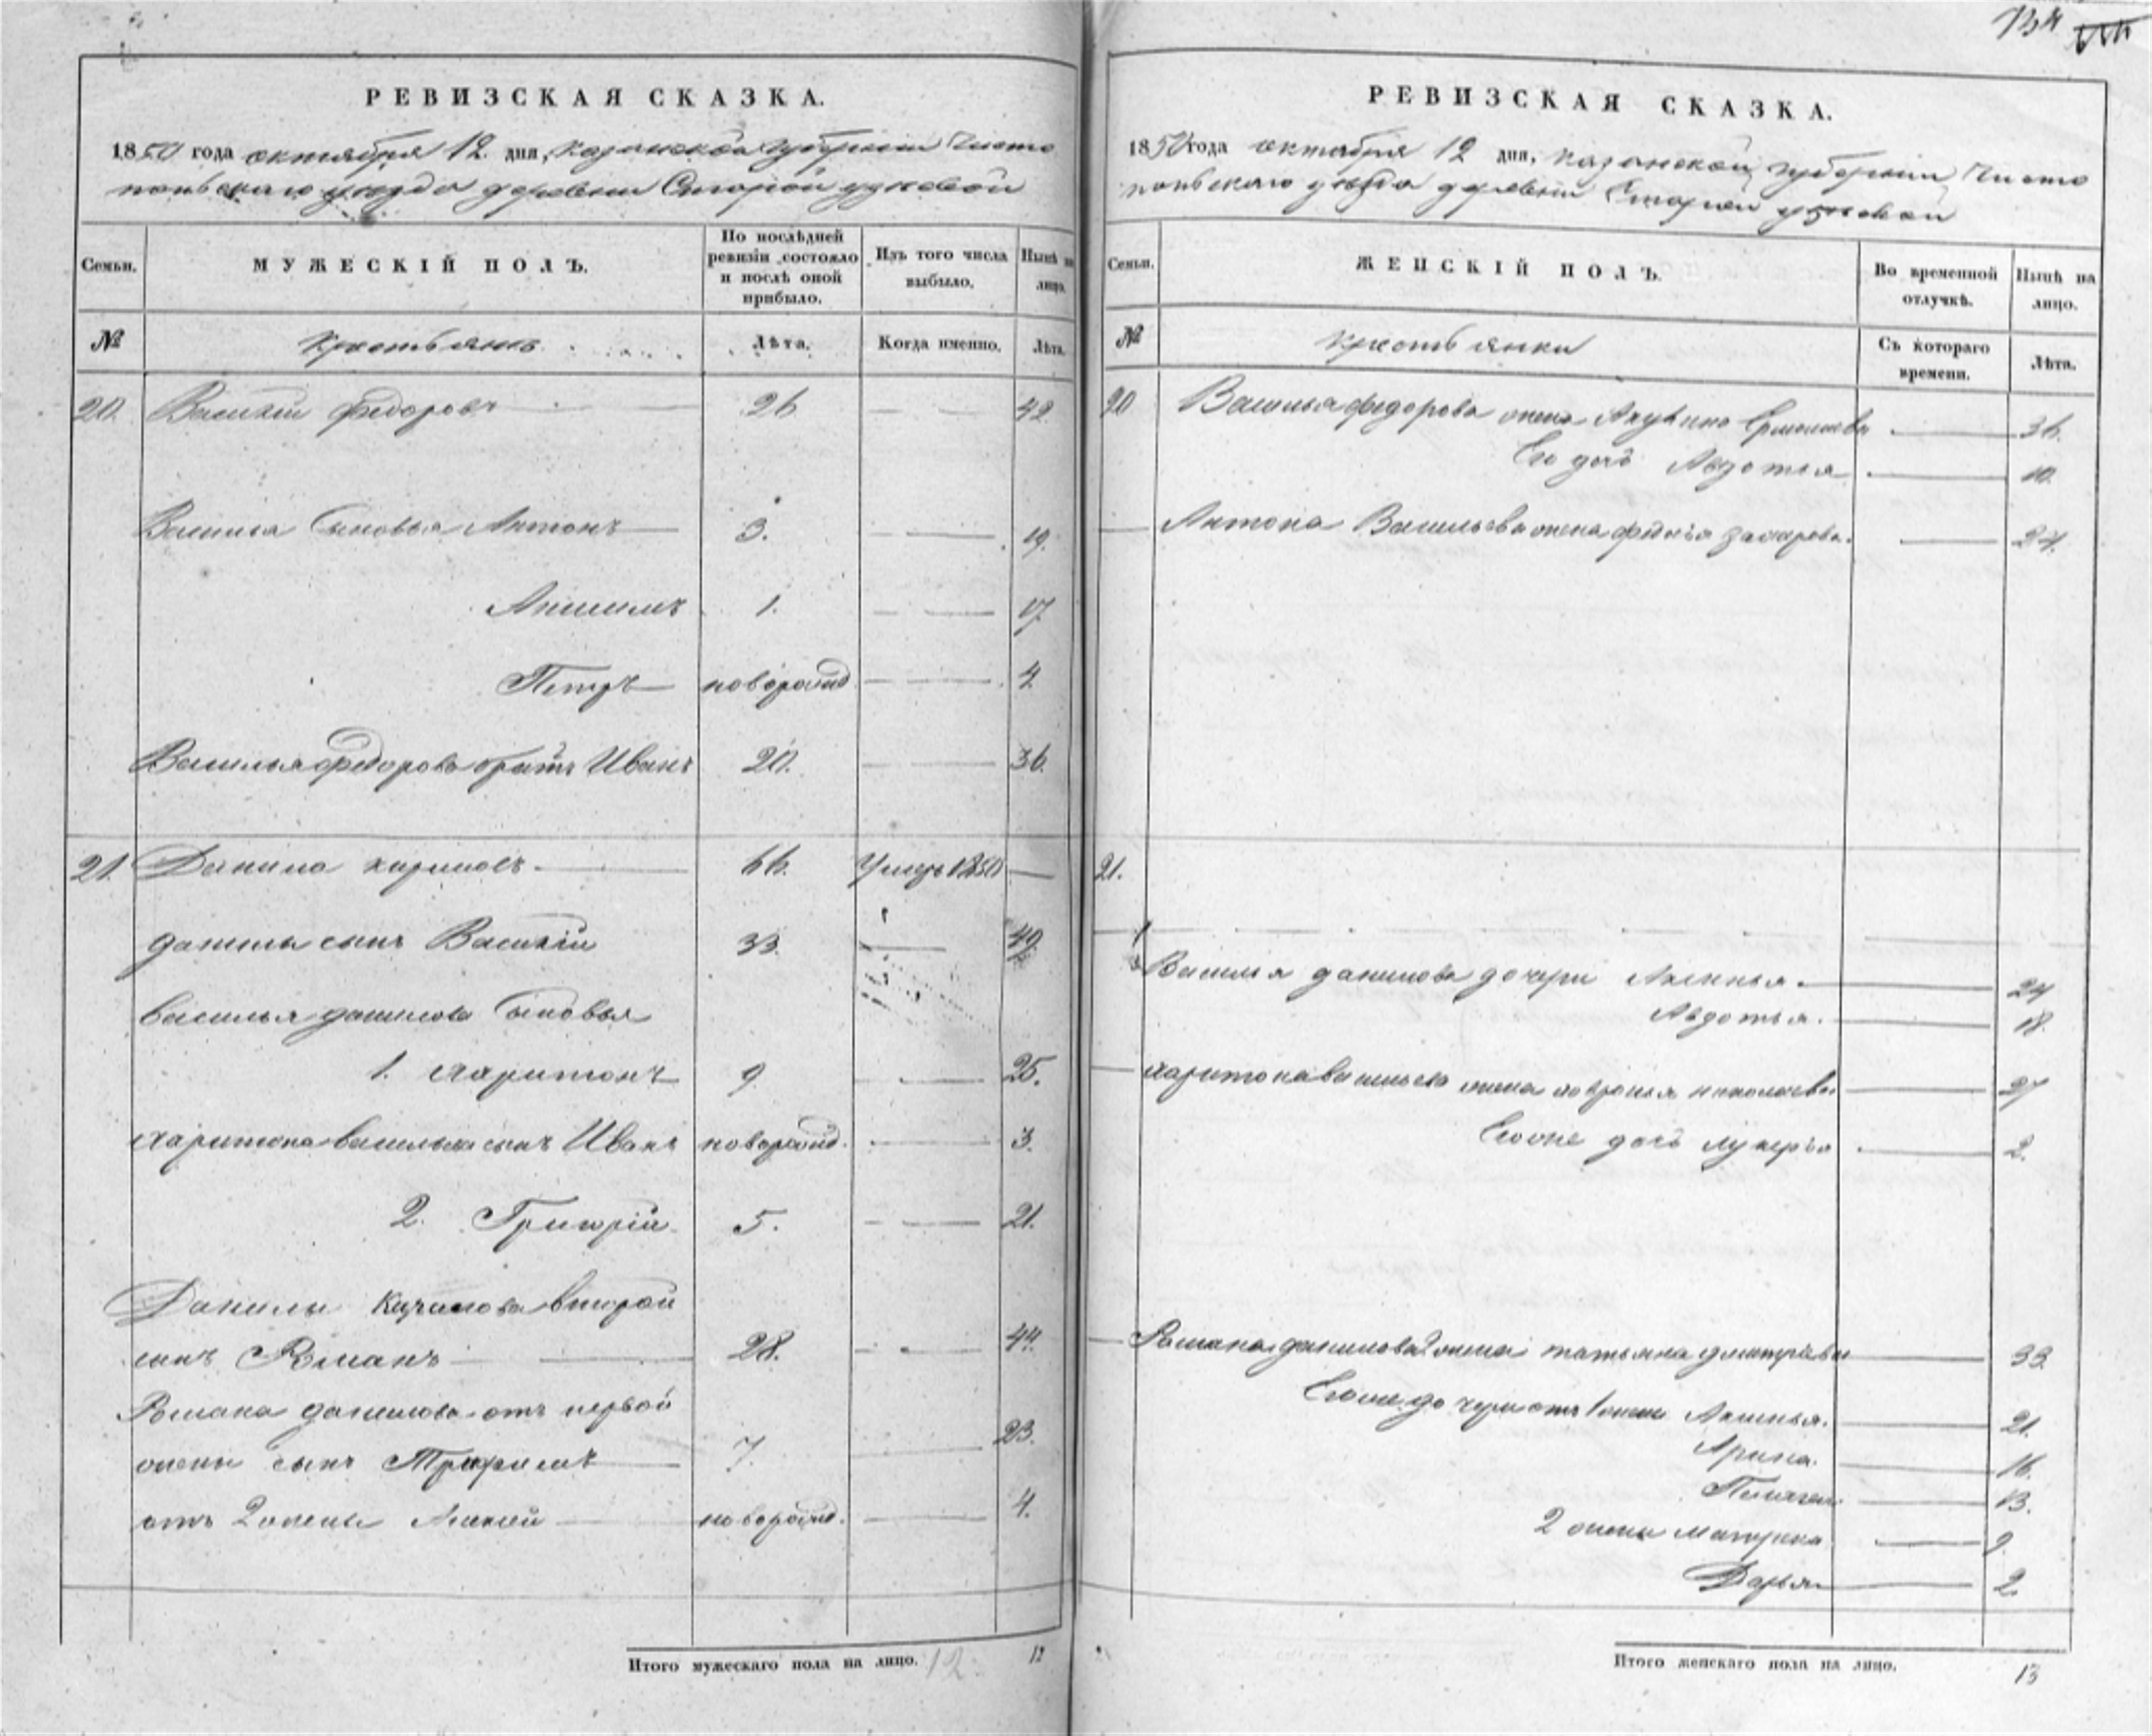 134
РЕВИЗСКАЯ СКАЗКА.
1850 года октября 12. дня, Казанской губернии Чисто
польскаго уезда деревни Старой узеевой
Семьи.
МУЖЕСКІЙ ПОЛЪ.
По послѣдней ревизіи состояло и послѣ оной прибыло.
Изъ того числа выбыло.
Нынѣ на лицо.
№
Крестьянъ
Лѣта.
Когда именно.
Лѣта.
20. Василій Федоровъ 26 42
Василья сыновья Антонъ 3. 19.
1. 17
Петръ новорожд 4
Василья Федорова братъ Иванъ 20. 36.
21. Данила 66. Умеръ 1850
Данилы сынъ Василій 33. 49
Василья Данилова сыновья
1. Харитонъ 9 25.
Харитона Васильева сынъ Иванъ новорожд. 3.
2. Григорій 5. 21.
Данилы второй
сынъ Романъ 28. 44.
Романа Данилова отъ первой
жены сынъ 7. 23.
отъ 2 жены новорожд. 4.
Итого мужескаго пола на лицо. 12 12
РЕВИЗСКАЯ СКАЗКА.
1850 года октября 12 дня, Казанской губерніи Чисто
польскаго уезда деревни Старой узеевой
Семьи.
ЖЕНСКІЙ ПОЛЪ.
Во временной отлучкѣ.
Нынѣ на лицо.
№
Крестьянки
Съ котораго времени.
Лѣта.
20 Василья Федорова жена Акулина 36.
Его дочь Авдотья 10.
Антона Васильева жена Захарова. 24.
21.
Василья Данилова дочери 24
Авдотья. 18.
Харитона Васильева жена Николаева 27
Его же дочь Лукерья 2.
Романа Данилова 2 жена Татьяна 33
Его же дочери отъ 1 жены 21.
Арина. 16.
13.
2 жены 9
Дарья 2.
Итого женскаго пола на лицо. 13